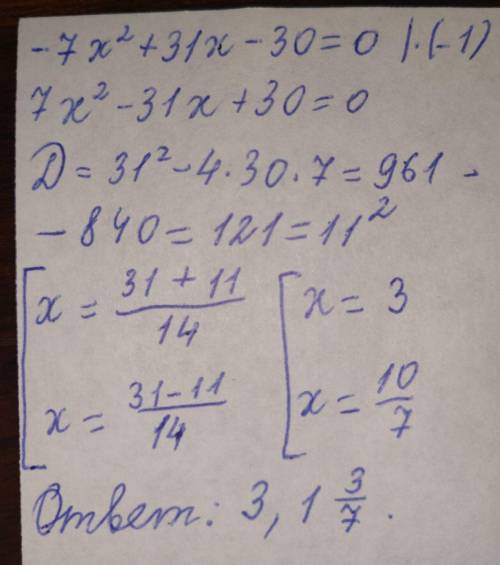 -7x² + 31x - 30 = 0 | · (-1)
7x² - 31x + 30 = 0
D = 31² - 4 · 30 · 7 = 961 -
- 840 = 121 = 11²
[ x = (31 + 11)/14 [ x = 3
x = (31 - 11)/14 x = 10/7
Ответ: 3, 1 3/7.